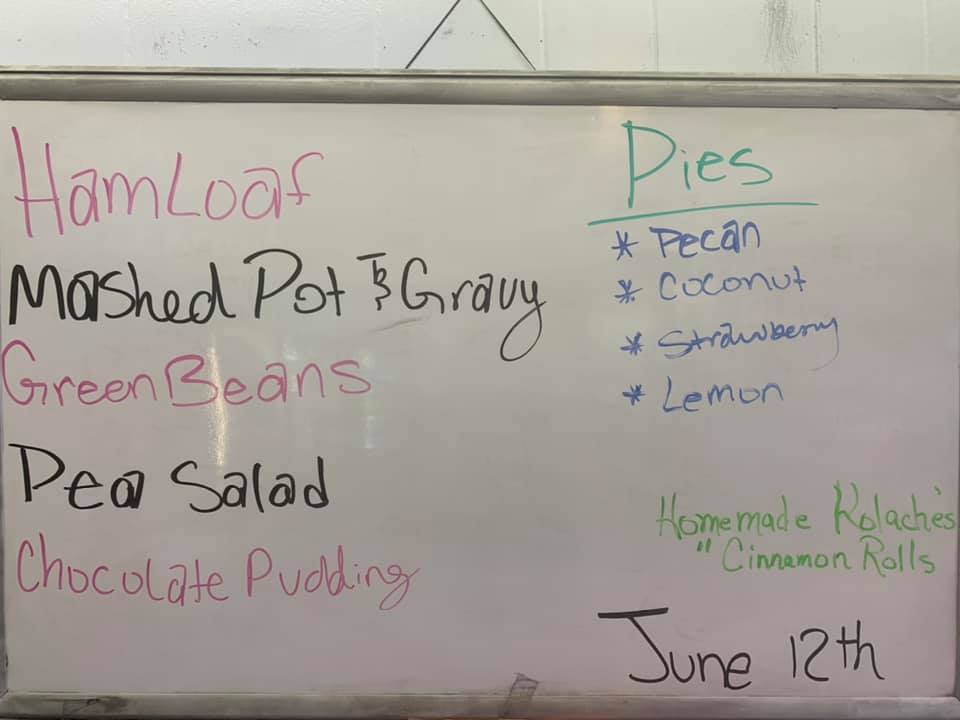 HamLoaf
Mashed Pot & Gravy
Green Beans
Pea Salad
Chocolate Pudding
Pies
* Pecan
* Coconut
* Strawberry
* Lemon
Homemade Kolache's
" Cinnamon Rolls
June 12th